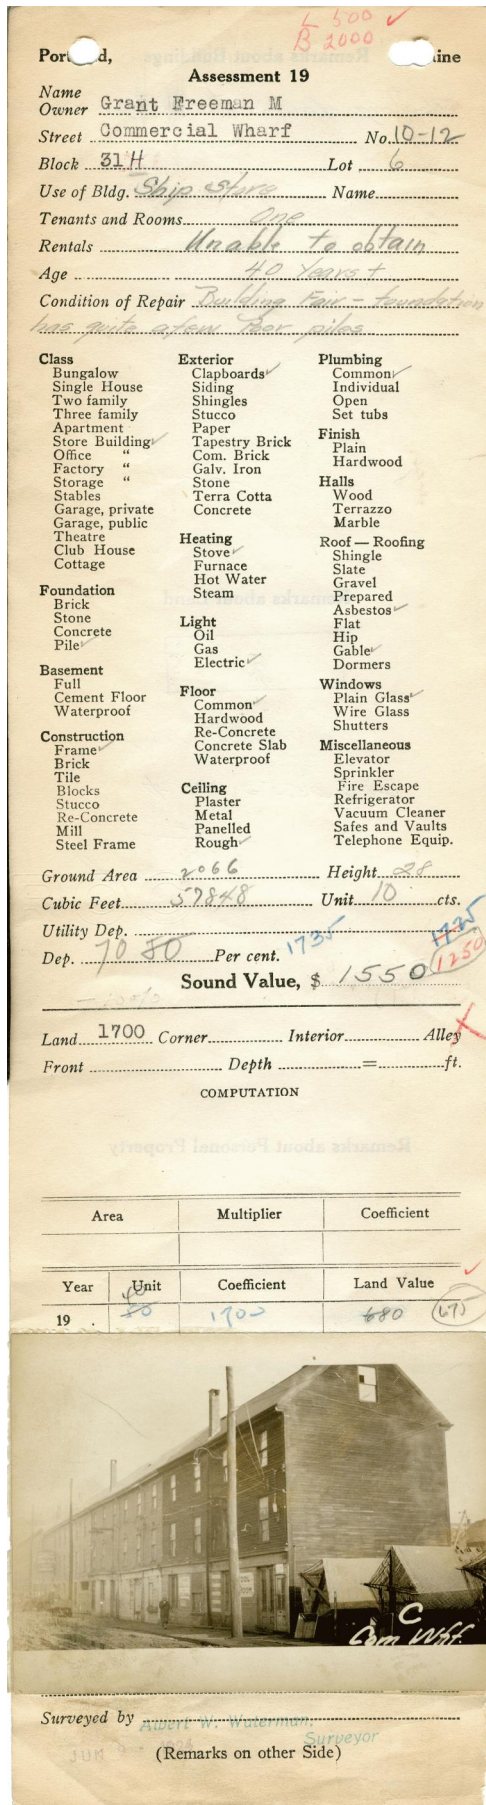 L 500 ✓
B 2000
Port d, ine
Assessment 19
Name
Owner Grant Freeman M
Street Commercial Wharf No. 10-12
Block 31H Lot 6
Use of Bldg. Ship Store Name
Tenants and Rooms One
Rentals Unable to obtain
Age 40 Years +
Condition of Repair Building Fair - foundation
has quite a few Poor piles
Class
Bungalow
Single House
Two family
Three family
Apartment
Store Building ✓
Office "
Factory "
Storage "
Stables
Garage, private
Garage, public
Theatre
Club House
Cottage
Foundation
Brick
Stone
Concrete
Pile ✓
Basement
Full
Cement Floor
Waterproof
Construction
Frame ✓
Brick
Tile
Blocks
Stucco
Re-Concrete
Mill
Steel Frame
Exterior
Clapboards ✓
Siding
Shingles
Stucco
Paper
Tapestry Brick
Com. Brick
Galv. Iron
Stone
Terra Cotta
Concrete
Heating
Stove ✓
Furnace
Hot Water
Steam
Light
Oil
Gas
Electric ✓
Floor
Common ✓
Hardwood
Re-Concrete
Concrete Slab
Waterproof
Ceiling
Plaster
Metal
Panelled
Rough ✓
Plumbing
Common ✓
Individual
Open
Set tubs
Finish
Plain
Hardwood
Halls
Wood
Terrazzo
Marble
Roof — Roofing
Shingle
Slate
Gravel
Prepared
Asbestos ✓
Flat
Hip
Gable ✓
Dormers
Windows
Plain Glass ✓
Wire Glass
Shutters
Miscellaneous
Elevator
Sprinkler
Fire Escape
Refrigerator
Vacuum Cleaner
Safes and Vaults
Telephone Equip.
Ground Area 2066 Height 28
Cubic Feet 57848 Unit 10 cts.
Utility Dep. 1735
Dep. 70 80 Per cent. 1735 1250
Sound Value, $ 1550
Land 1700 Corner Interior Alley
Front Depth = ft.
COMPUTATION
Remarks about Personal Property
Area Multiplier Coefficient
Year Unit Coefficient Land Value
40
19 . 80 1700 680 (675)
C
Com Whf.
Surveyed by Albert W. Waterman,
Surveyor
(Remarks on other Side)